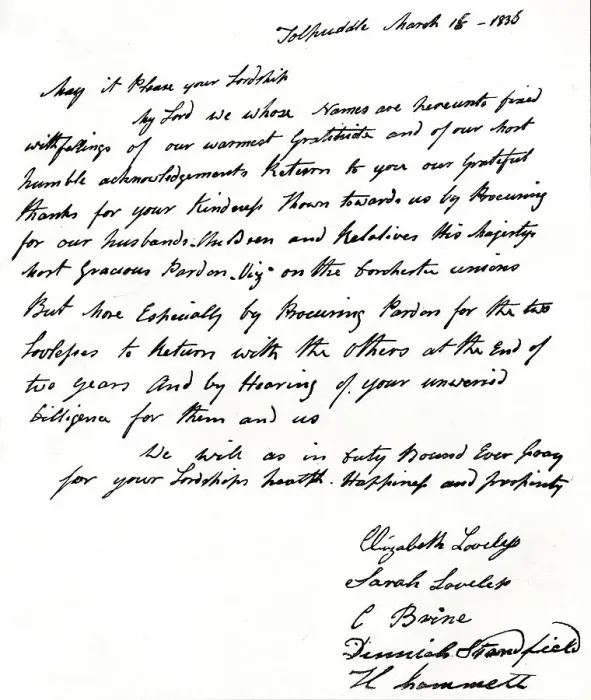 Tolpuddle March 18 - 1836
May it Please your Lordship
My Lord we whose Names are hereunto fixed
with felings of our warmest Gratitude and of our Most
humble acknowledgements Return to you our Grateful
thanks for your Kindness Shown towards us by Procuring
for our husbands and Relatives His Majestys
Most Gracious Pardon Viz on the Dorchester unions
But More Especially by Procuring Pardon for the two
Lovlesses to Return with the Others at the End of
two years And by Hearing of your unweried
Dilligence for them and us
We will as in duty Bound Ever pray
for your Lordships health . Happiness and prosperity
Elizabeth Loveless
Sarah Loveless
C Brine
Standfield
H hammett